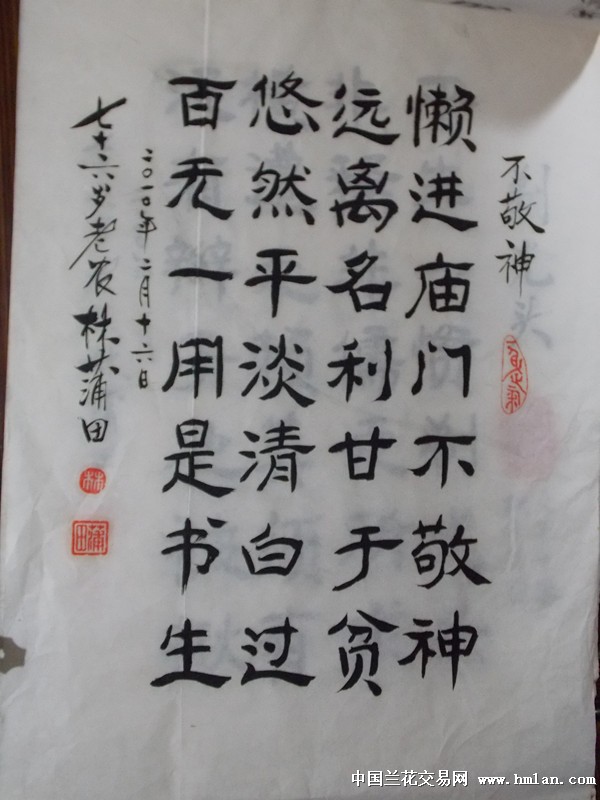 不敬神
懒进庙门不敬神
远离名利甘于贫
悠然平淡清白过
百无一用是书生
二〇一〇年二月十六日
七十六岁老农林蒲田
林
蒲田
中国兰花交易网 www.hmlan.com